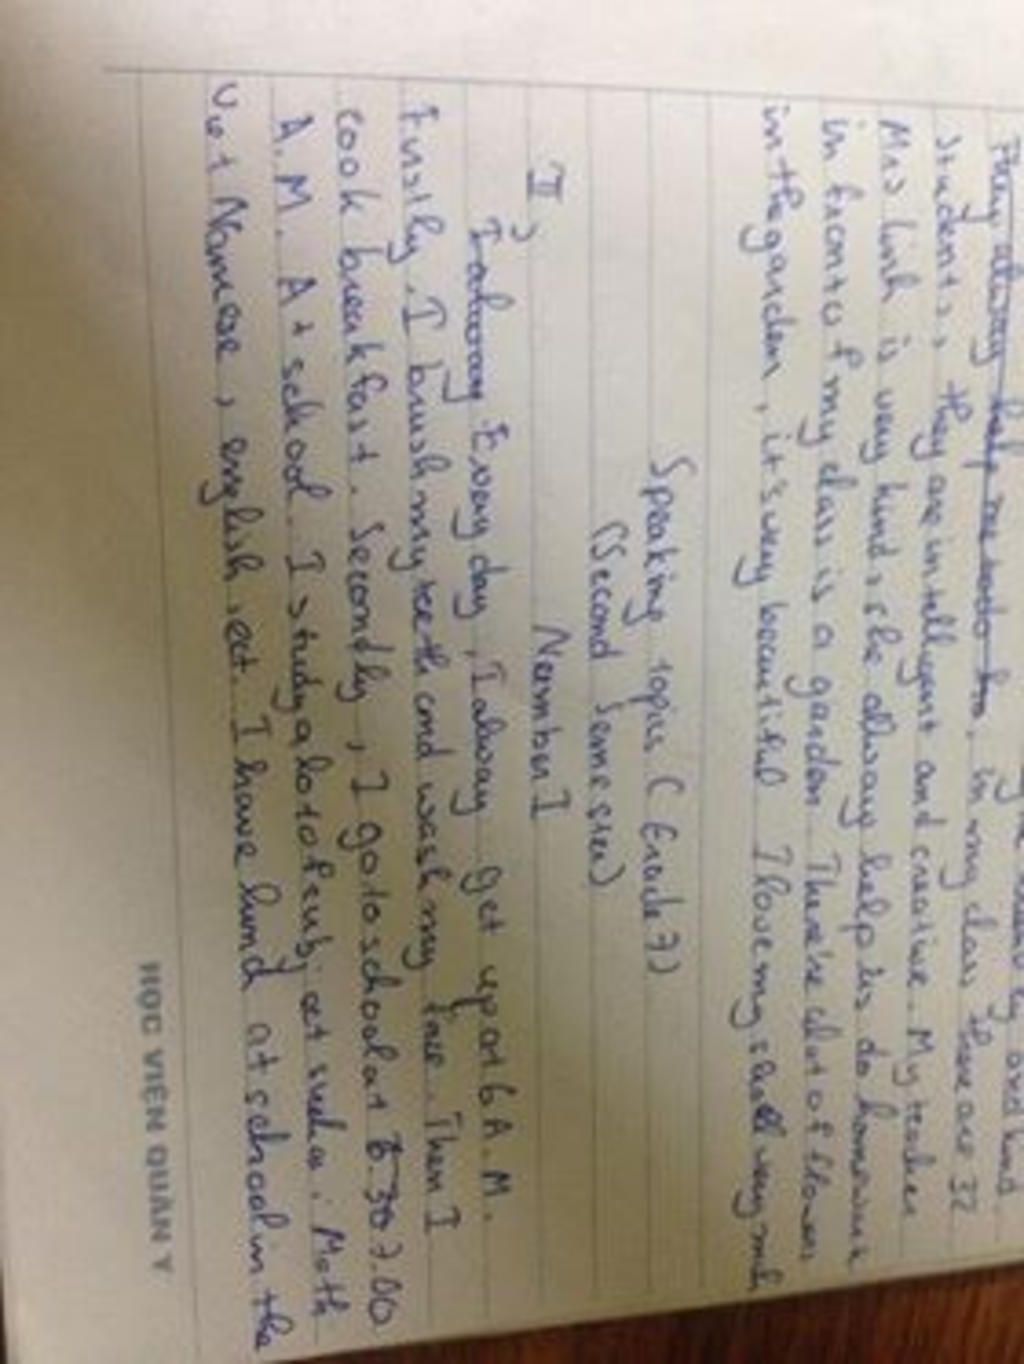 and kind.
They alway help me to do hw, in my class there are 32
students, they are intelligent and creative. My teacher
Mrs Linh is very kind, she alway help us do homework
in front of my class is a garden. There's alot of flowers
in the garden, it's very beautiful I love my very much
Speaking topics (Grade 7)
(Second Semester)
II, Number I
Every day, I alway get up at 6 A.M.
Firstly, I brush my teeth and wash my face. Then I
cook breakfast. Secondly, I go to school at 6.30 7.00
A.M. At school. I study a lot of subject such as: Math
Viet Namese, english, ect. I have lunch at school in the
HỌC VIỆN QUÂN Y